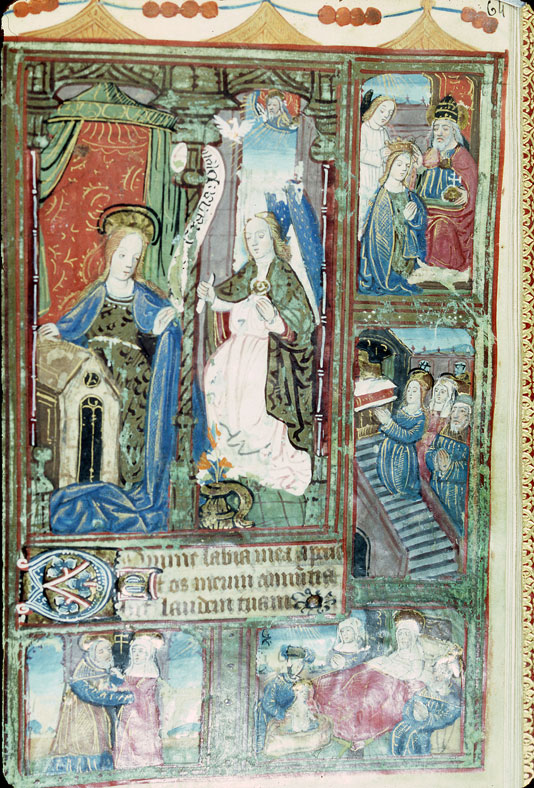 64
Ave gra
Domine labia mea aperies
Et os meum annuntia
bit laudem tuam